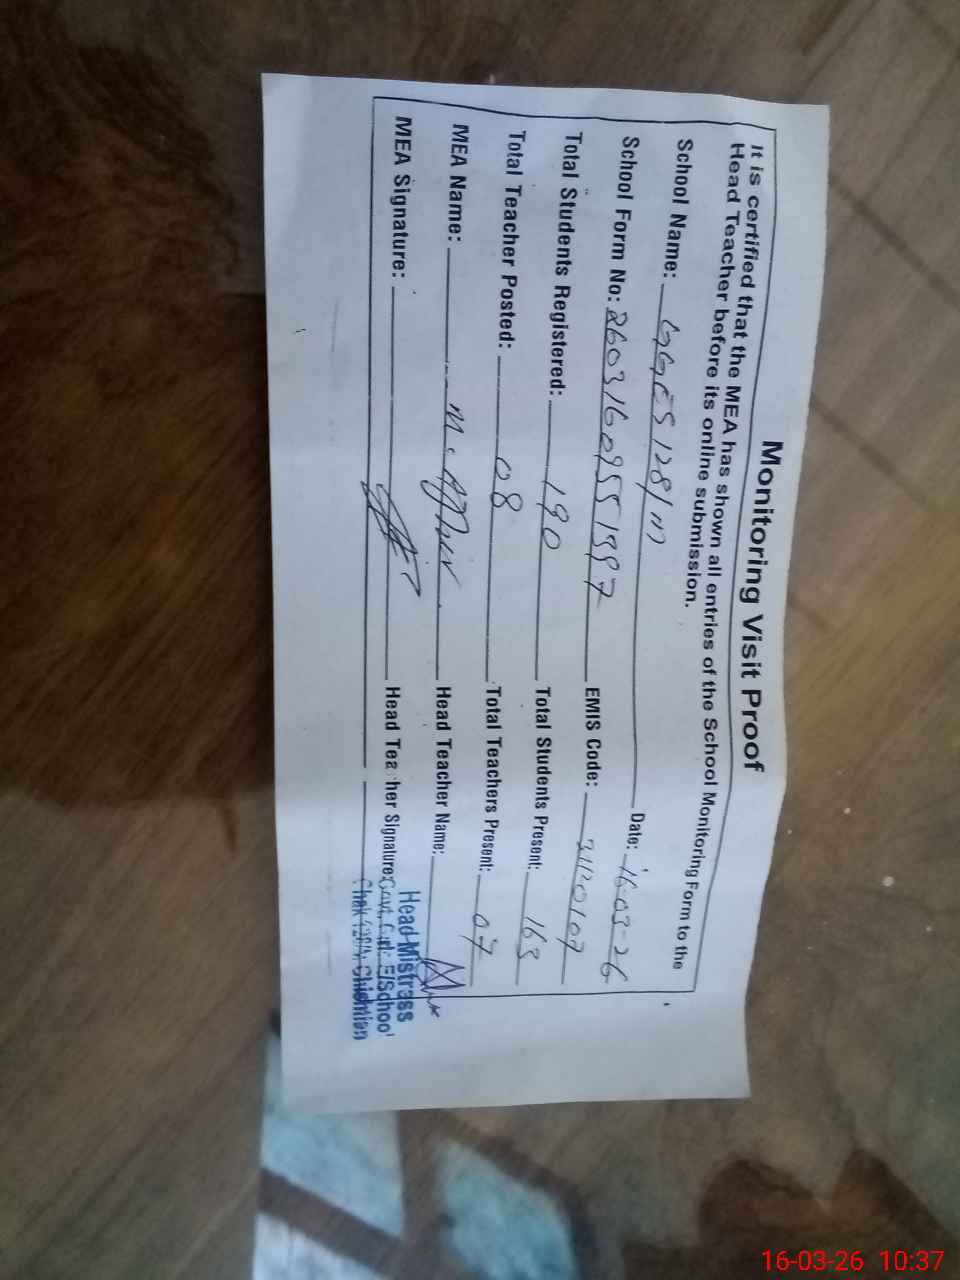 Monitoring Visit Proof
It is certified that the MEA has shown all entries of the School Monitoring Form to the
Head Teacher before its online submission.
School Name: GGES 128/m Date: 16-03-26
School Form No: EMIS Code: 31120107
Total Students Registered: 190 Total Students Present: 163
Total Teacher Posted: 08 Total Teachers Present: 07
MEA Name: M. Head Teacher Name:
MEA Signature: Head Teacher Signature:
Head Mistrass
Govt. E/School
Chak Chishtian
16-03-26 10:37